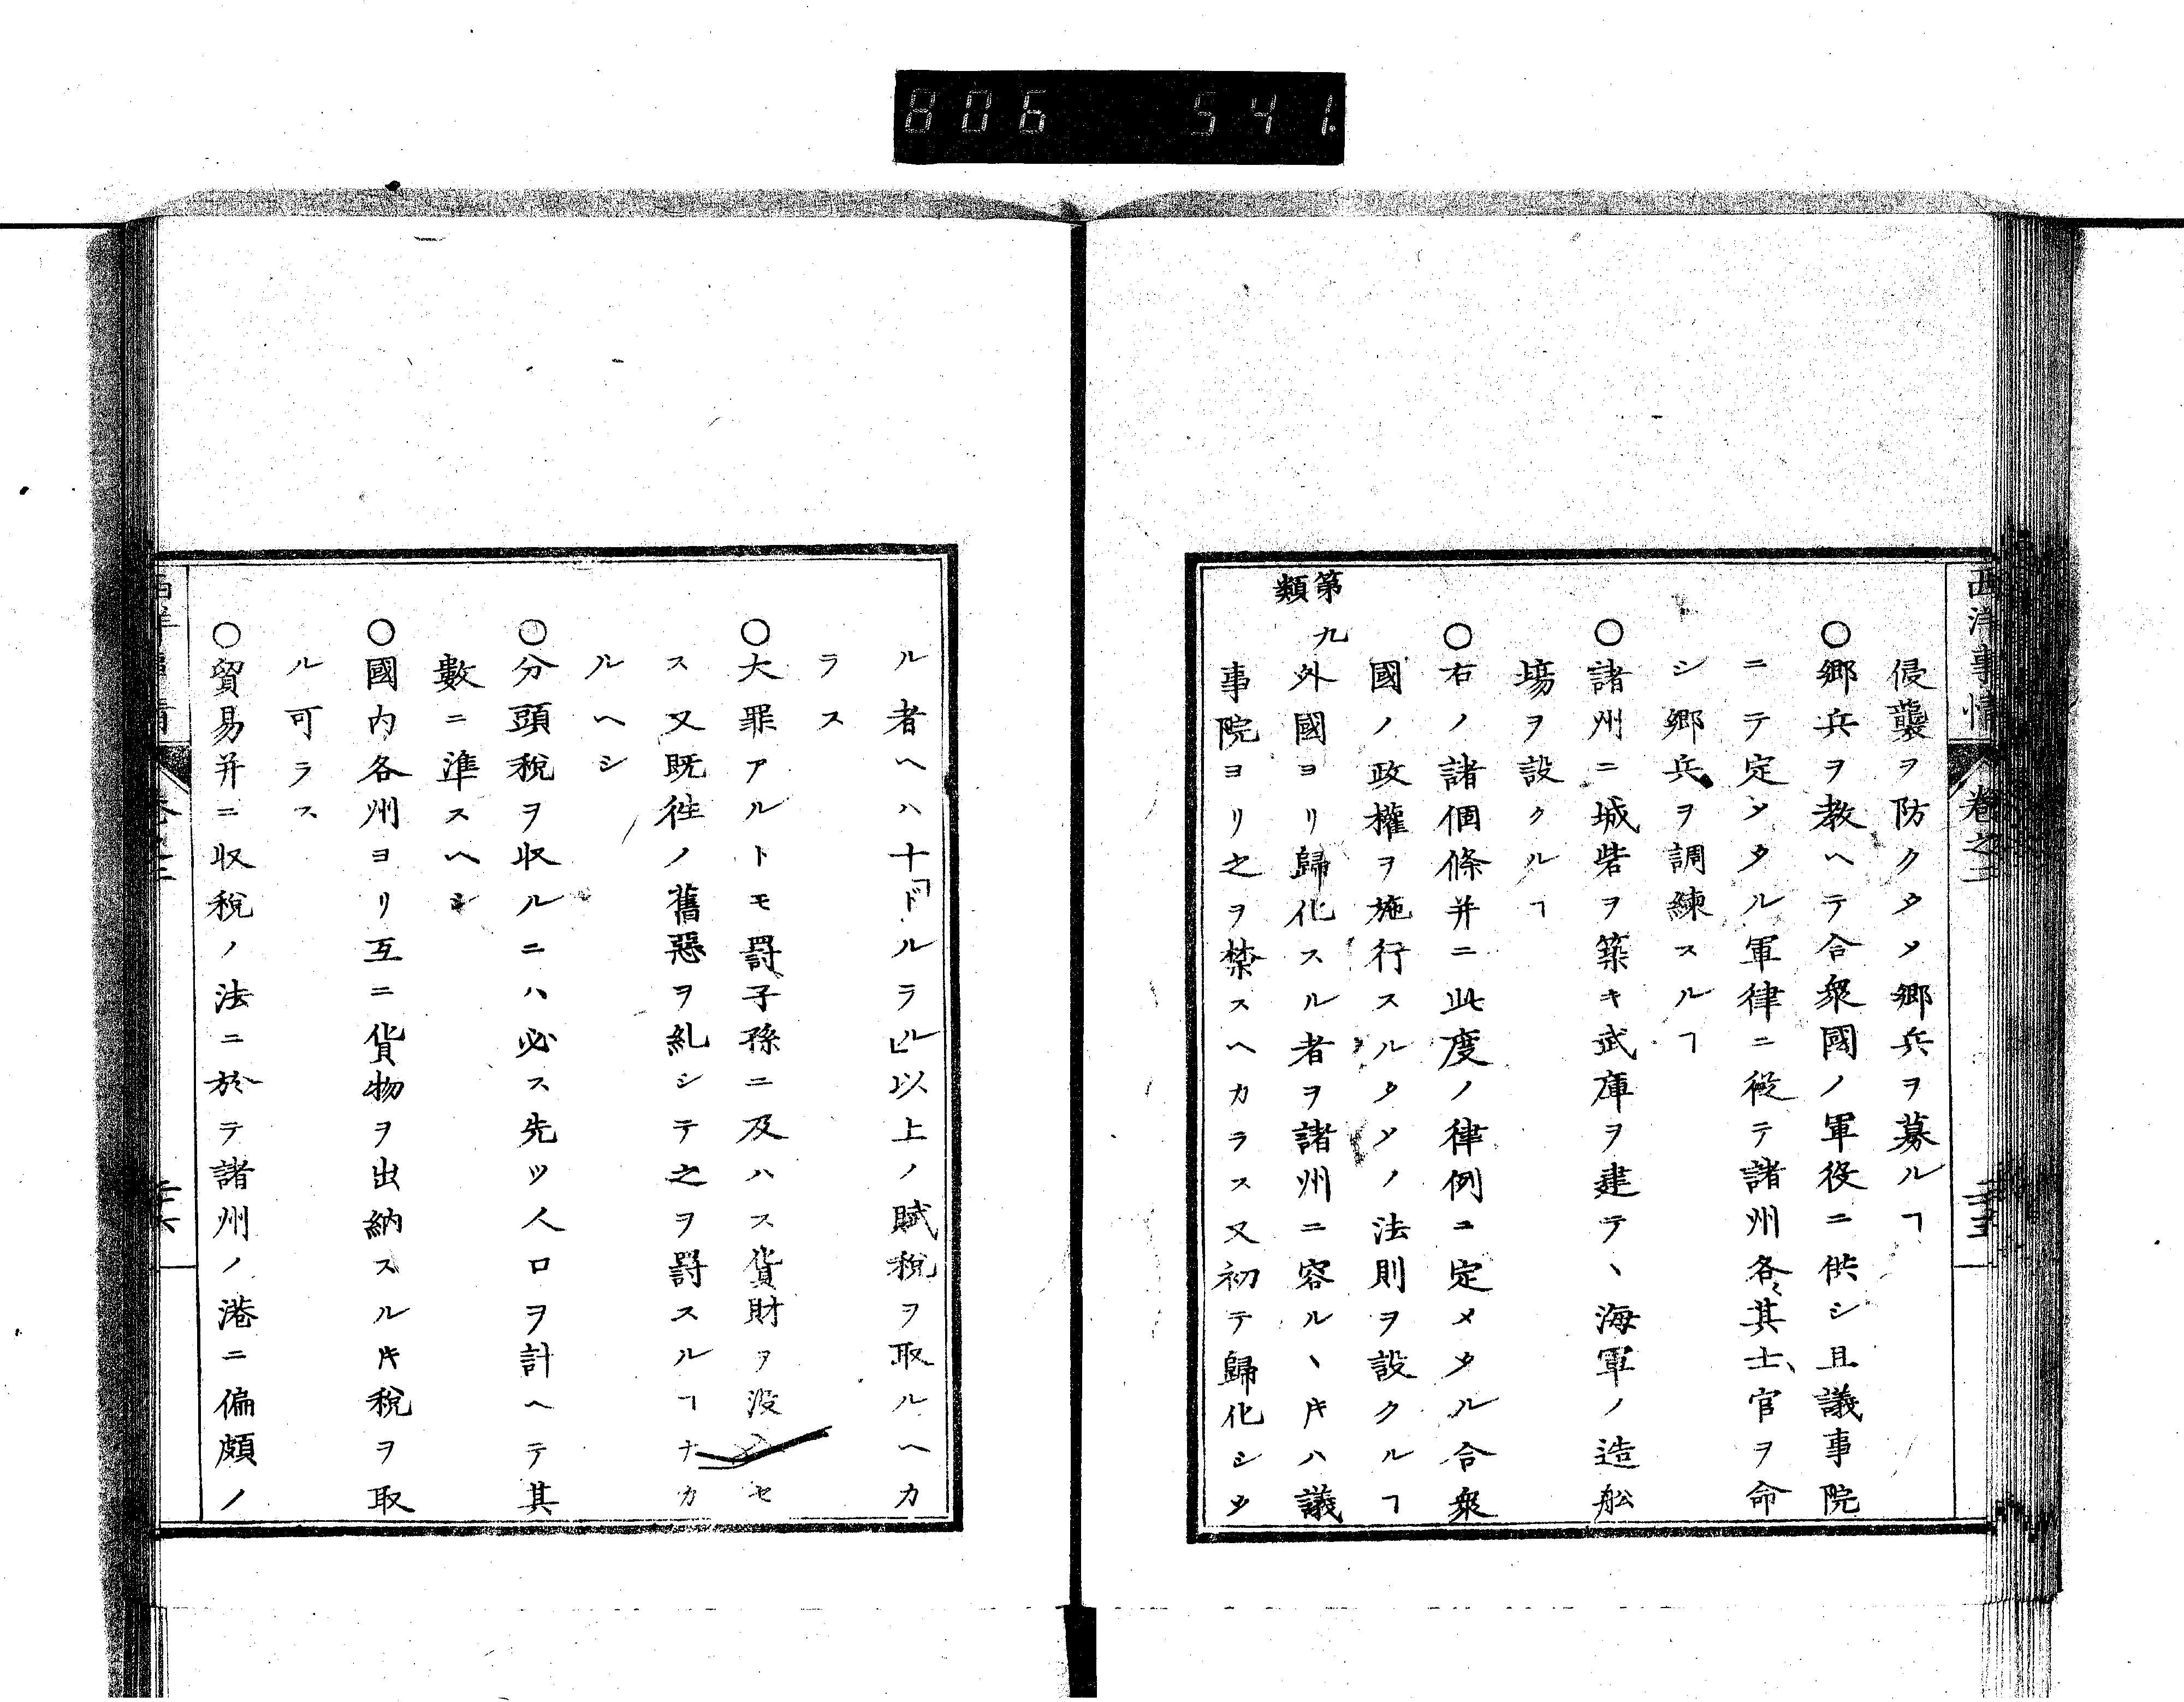 806 541.
西洋事情 卷之二
侵襲ヲ防クタメ郷兵ヲ募ルヿ
○郷兵ヲ教ヘテ合衆國ノ軍役ニ供シ且議事院
ニテ定メタル軍律ニ從テ諸州各〻其士官ヲ命
シ郷兵ヲ調練スルヿ
○諸州ニ城砦ヲ築キ武庫ヲ建テヽ海軍ノ造舩
塲ヲ設クルヿ
○右ノ諸個條并ニ此度ノ律例ニ定メタル合衆
國ノ政權ヲ施行スルタメノ法則ヲ設クルヿ
第九類
外國ヨリ歸化スル者ヲ諸州ニ容ルヽ𪜈ハ議
事院ヨリ之ヲ禁スヘカラス又初テ歸化シタ
ル者ヘハ十「ドルラル」以上ノ賦税ヲ取ルヘカ
ラス
○大罪アルトモ罰子孫ニ及ハス貨財ヲ没入セ
ス又既徃ノ舊惡ヲ糺シテ之ヲ罸スルヿナカ
ルヘシ
○分頭税ヲ収ルニハ必ス先ツ人口ヲ計ヘテ其
數ニ準スヘシ
○國内各州ヨリ互ニ貨物ヲ出納スル𪜈税ヲ取
ル可ラス
○貿易并ニ収税ノ法ニ於テ諸州ノ港ニ偏頗ノ